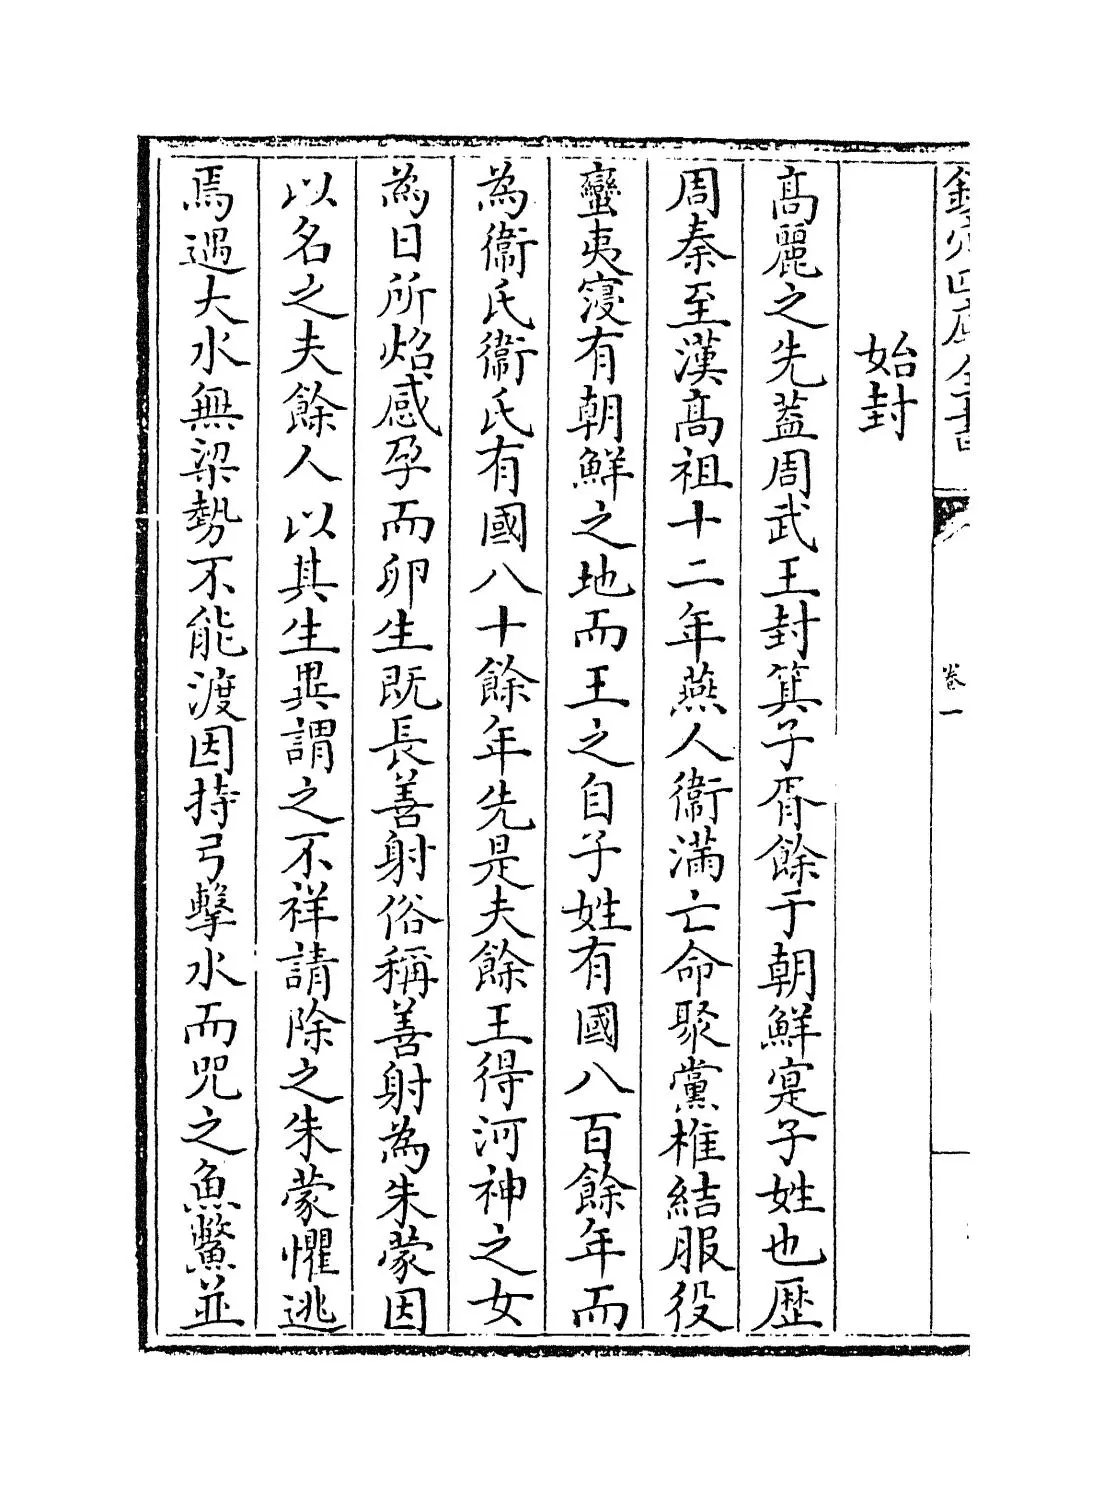 欽定四庫全書
卷一
始封
高麗之先蓋周武王封箕子胥餘于朝鮮寔子姓也歷
周秦至漢高祖十二年燕人衞滿亡命聚黨椎結服役
蠻夷寖有朝鮮之地而王之自子姓有國八百餘年而
為衞氏衞氏有國八十餘年先是夫餘王得河神之女
為日所焰感孕而卵生既長善射俗稱善射為朱蒙因
以名之夫餘人以其生異謂之不祥請除之朱蒙懼逃
焉遇大水無梁勢不能渡因持弓擊水而咒之魚鱉並